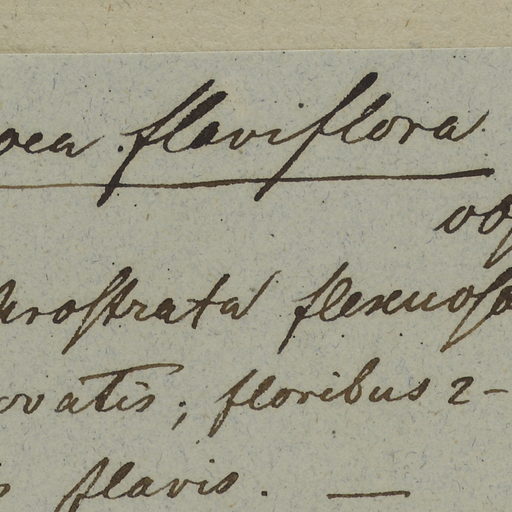 oea flaviflora
prostrata flexuosa
ovatis; floribus 2-
flavis. —